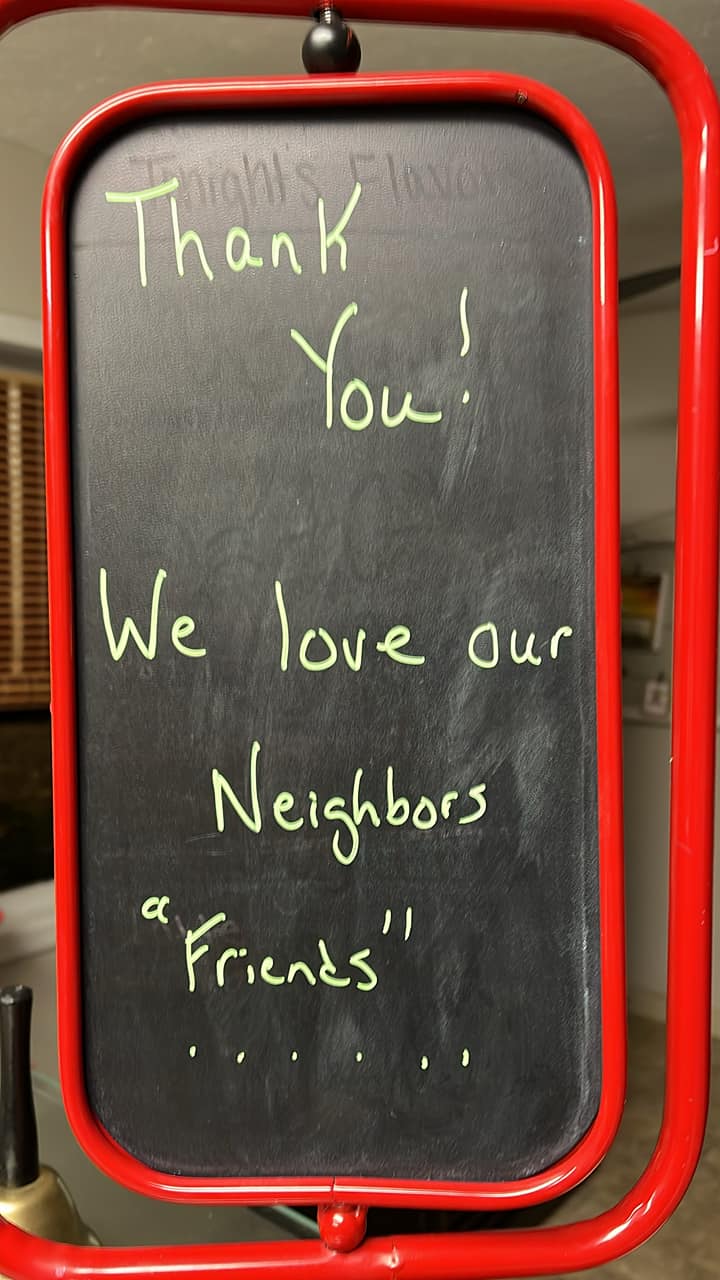 Tonight's Flavor
Thank
You!
We love our
Neighbors
"Friends"
. . . . . .